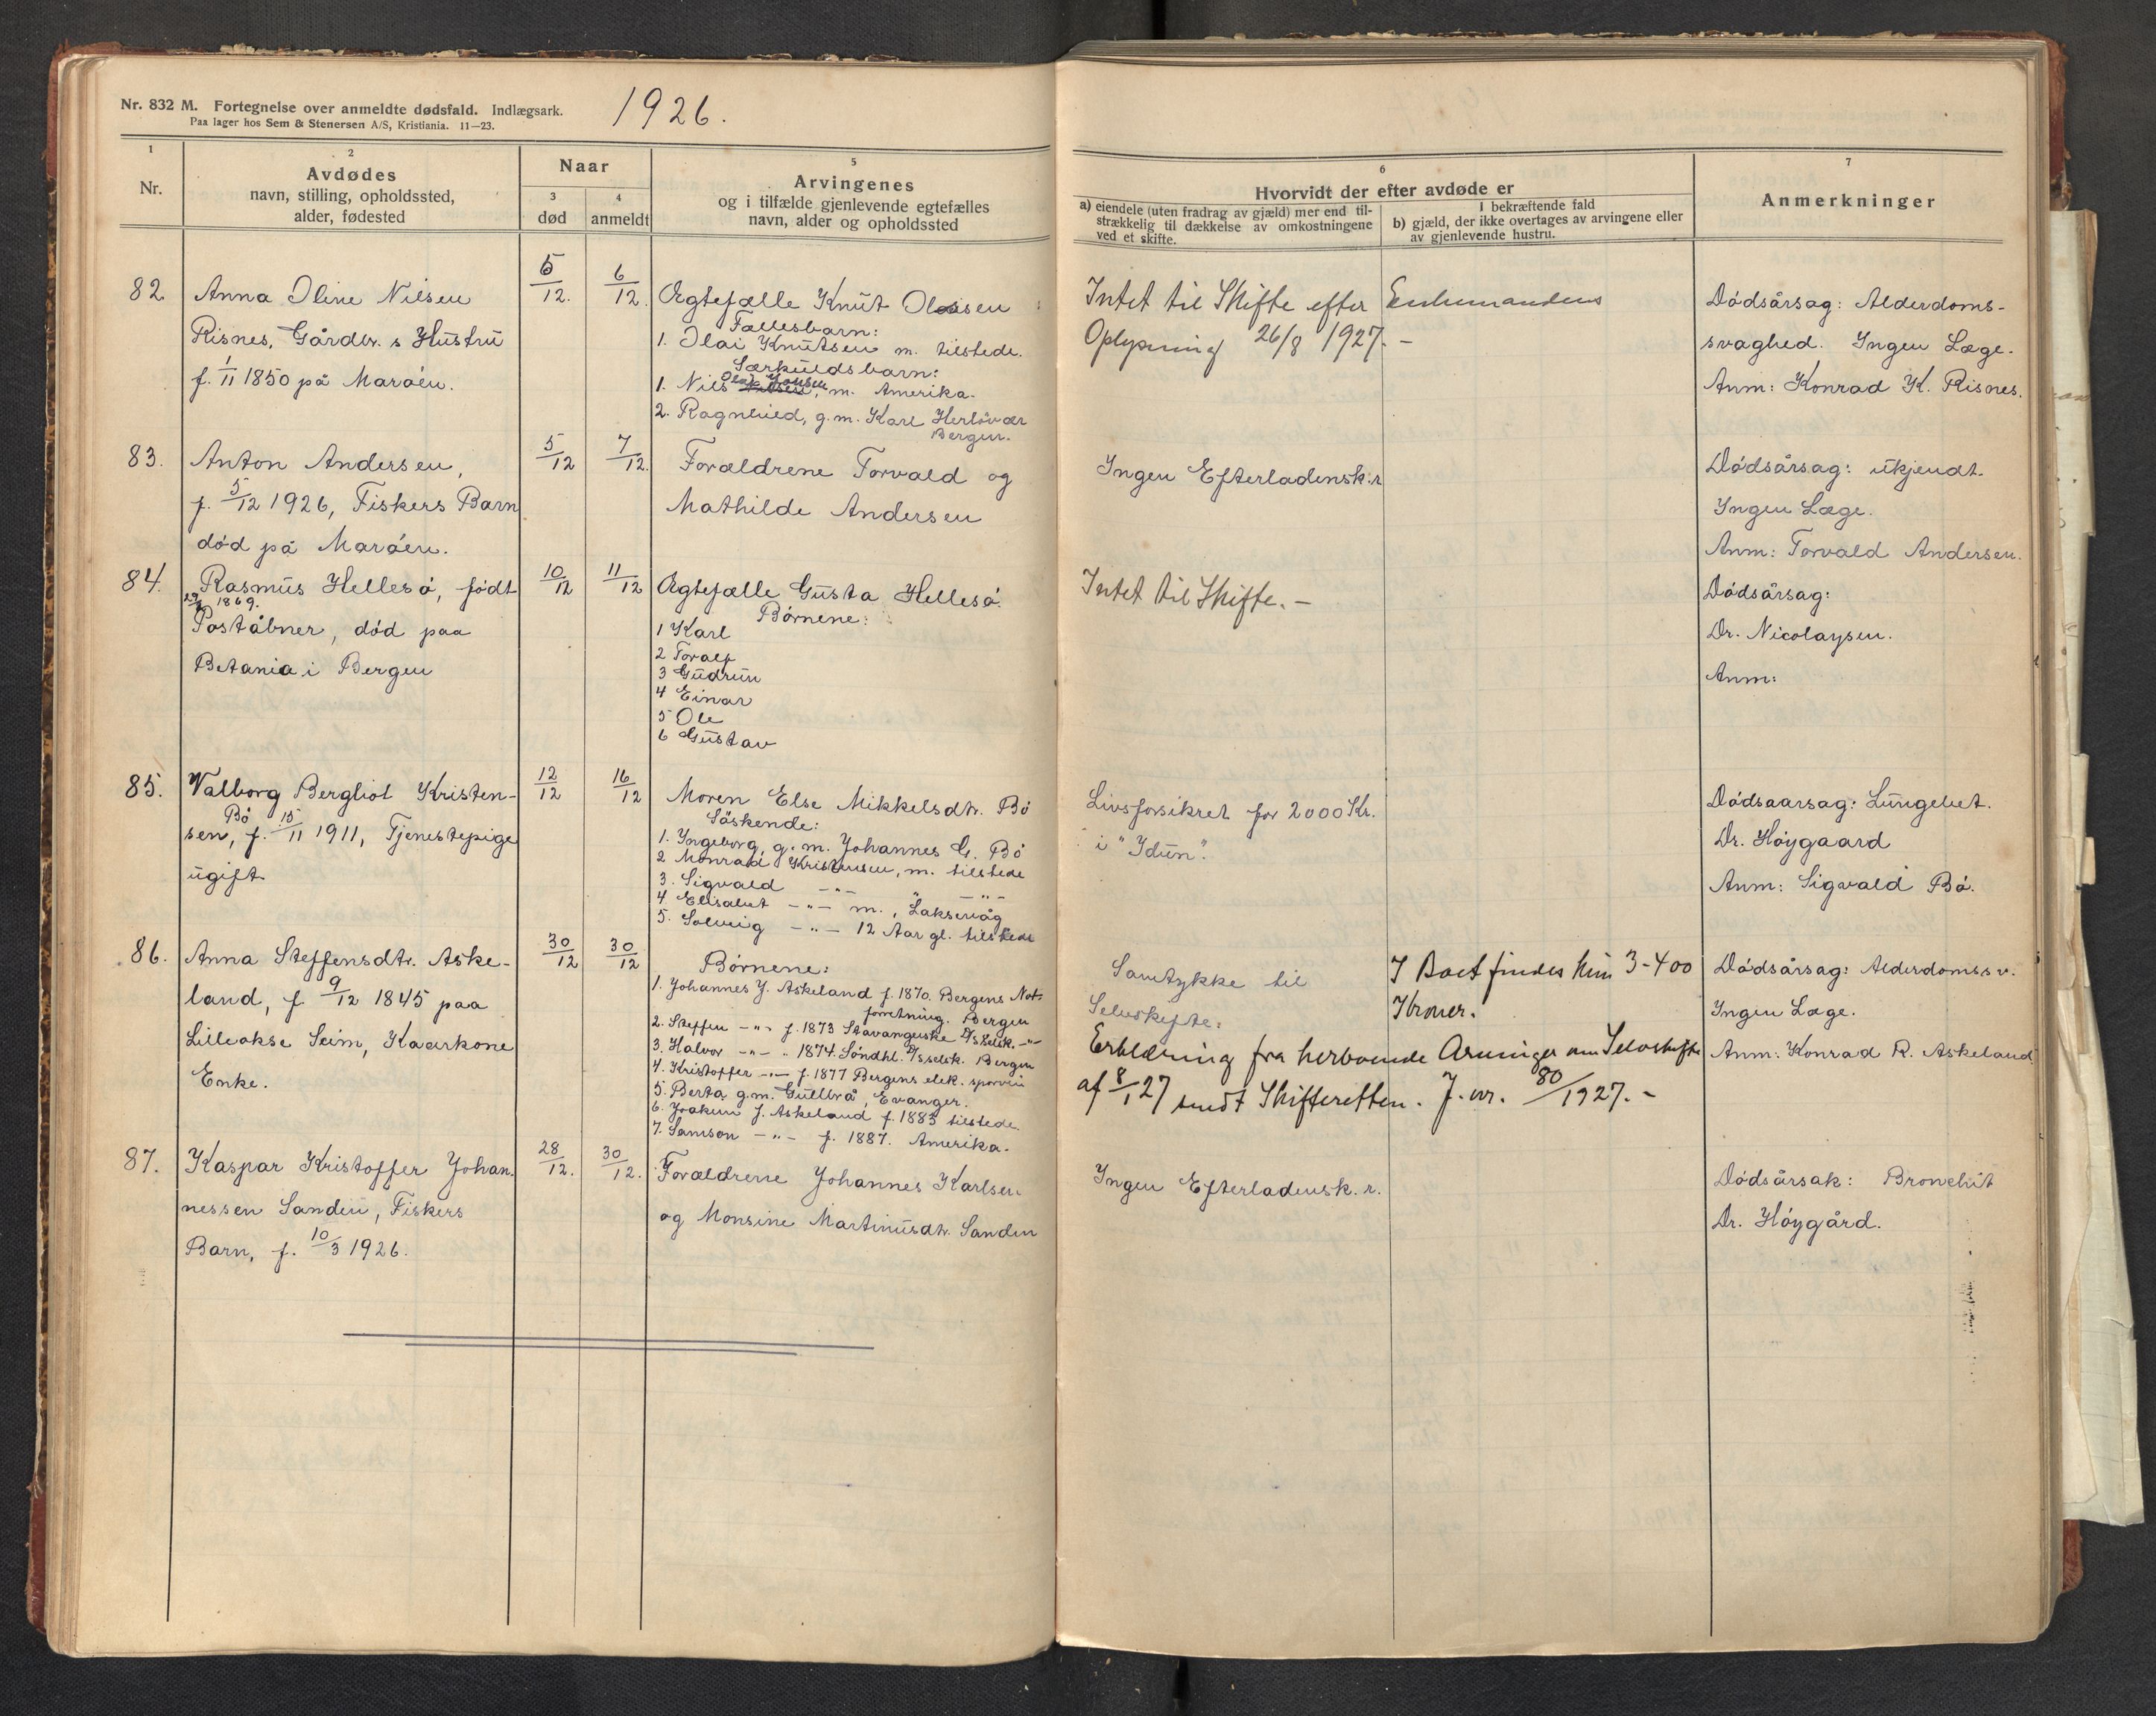 Nr. 832 M. Fortegnelse over anmeldte dødsfald. Indlægsark.
Paa lager hos Sem & Stenersen A/S, Kristiania. 11—23.
1926.
1
Nr.
2
Avdødes
navn, stilling, opholdssted,
alder, fødested
Naar
3
død
4
anmeldt
5
Arvingenes
og i tilfælde gjenlevende egtefælles
navn, alder og opholdssted
6
Hvorvidt der efter avdøde er
a) eiendele (uten fradrag av gjæld) mer end til-
strækkelig til dækkelse av omkostningene
ved et skifte.
I bekræftende fald
b) gjæld, der ikke overtages av arvingene eller
av gjenlevende hustru.
7
Anmerkninger
82.
Anna Oline Nilsen
Risnes, Gårdbr.s Hustru
f. 1/11 1850 på Maröen.
5/12.
6/12.
Ægtefælle Knut Olsen
Fællesbarn:
1. Olai Knutsen m. tilstede.
Særkuldsbarn:
1. Nils Olai Jonsen, m. Amerika.
2. Ragnhild, g.m. Karl Herlövær
Bergen.
Intet til Skifte efter Enkemandens
Oplysning 26/8 1927. –
Dödsårsag: Alderdoms-
svaghed. Ingen Læge.
Anm: Konrad K. Risnes.
83.
Anton Andersen,
f. 5/12 1926, Fiskers Barn
död på Maröen.
5/12
7/12.
Forældrene Torvald og
Mathilde Andersen
Ingen Efterladensk:r
Dödsårsag: ukjendt.
Ingen Læge.
Anm: Torvald Andersen.
84.
Rasmus Hellesö, födt
1869.
Poståbner, död paa
Betania i Bergen
10/12
11/12
Ægtefælle Gusta Hellesö.
Börnene:
1 Karl
2 Toralf
3 Gudrun
4 Einar
5 Ole
6 Gustav
Intet til Skifte. –
Dödsårsag:
Dr. Nicolaysen.
Anm:
85.
Valborg Bergliot Kristen-
Bö
sen, f. 15/11 1911, Tjenestepige
ugift.
12/12
16/12
Moren Else Mikkelsdtr. Bö
Söskende:
1. Ingeborg, g.m. Johannes G. Bö
2 Monrad Kristensen, m. tilstede
3. Sigvald –"– " –"–
4 Elisabet –"– m., Laksevåg
5. Solveig –"– 12 Aar gl. tilstede
Livsforsikret for 2000 Kr.
i "Idun".
Dödsaarsag: Lungebet.
Dr. Höygaard
Anm: Sigvald Bö.
86.
Anna Steffensdtr. Aske-
land, f. 9/12 1845 paa
Lilleokse Seim, Kaarkone
Enke.
30/12
30/12
Börnene:
1. Johannes J. Askeland f. 1870. Bergens Not-
forretning. Bergen
2. Steffen –"– f. 1873 Stavangerske D/s selsk. –"–
3. Halvor –"– " 1874. Söndhl. D/s selsk. Bergen
4. Kristoffer –"– f. 1877 Bergens elek. sporvei
5. Berta g.m. Gullbrå, Evanger.
6. Joakim J. Askeland f. 1883 tilstede.
7. Samson –"– f. 1887. Amerika.
Samtykke til
Selvskifte.
I Boet findes kun 3-400
Kroner.
Erklæring fra herboende Arvinger om Selvskifte
af 8/1 27 sendt Skifteretten. J. nr. 80/1927. –
Dödsårsag: Alderdomssv.
Ingen Læge.
Anm: Konrad R. Askeland
87.
Kaspar Kristoffer Johan-
nessen Sanden, Fiskers
Barn, f. 10/3 1926.
28/12.
30/12.
Forældrene Johannes Karlsen
og Monsine Martinusdtr. Sanden
Ingen Efterladensk.r.
Dödsårsak: Bronchit
Dr. Höygård.